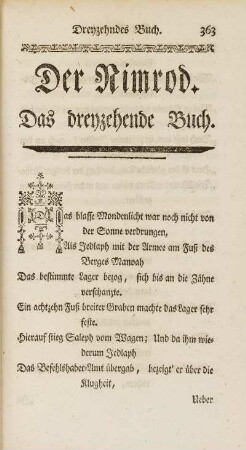 Dreyzehndes Buch. 363
Der Nimrod.
Das dreyzehende Buch.
Das blasse Mondenlicht war noch nicht von
der Sonne verdrungen,
Als Jedlaph mit der Armee am Fuß des
Berges Manoah
Das bestimmte Lager bezog, sich bis an die Zähne
verschanzte.
Ein achtzehn Fuß breiter Graben machte das Lager sehr
feste.
Hierauf stieg Saleph vom Wagen; Und da ihm wie-
derum Jedlaph
Das Befehlshaber-Amt übergab, bezeigt' er über die
Klugheit,
Ueber